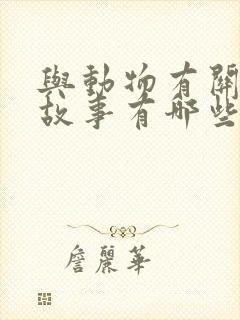 與動物有關
故事有哪些
詹麗華